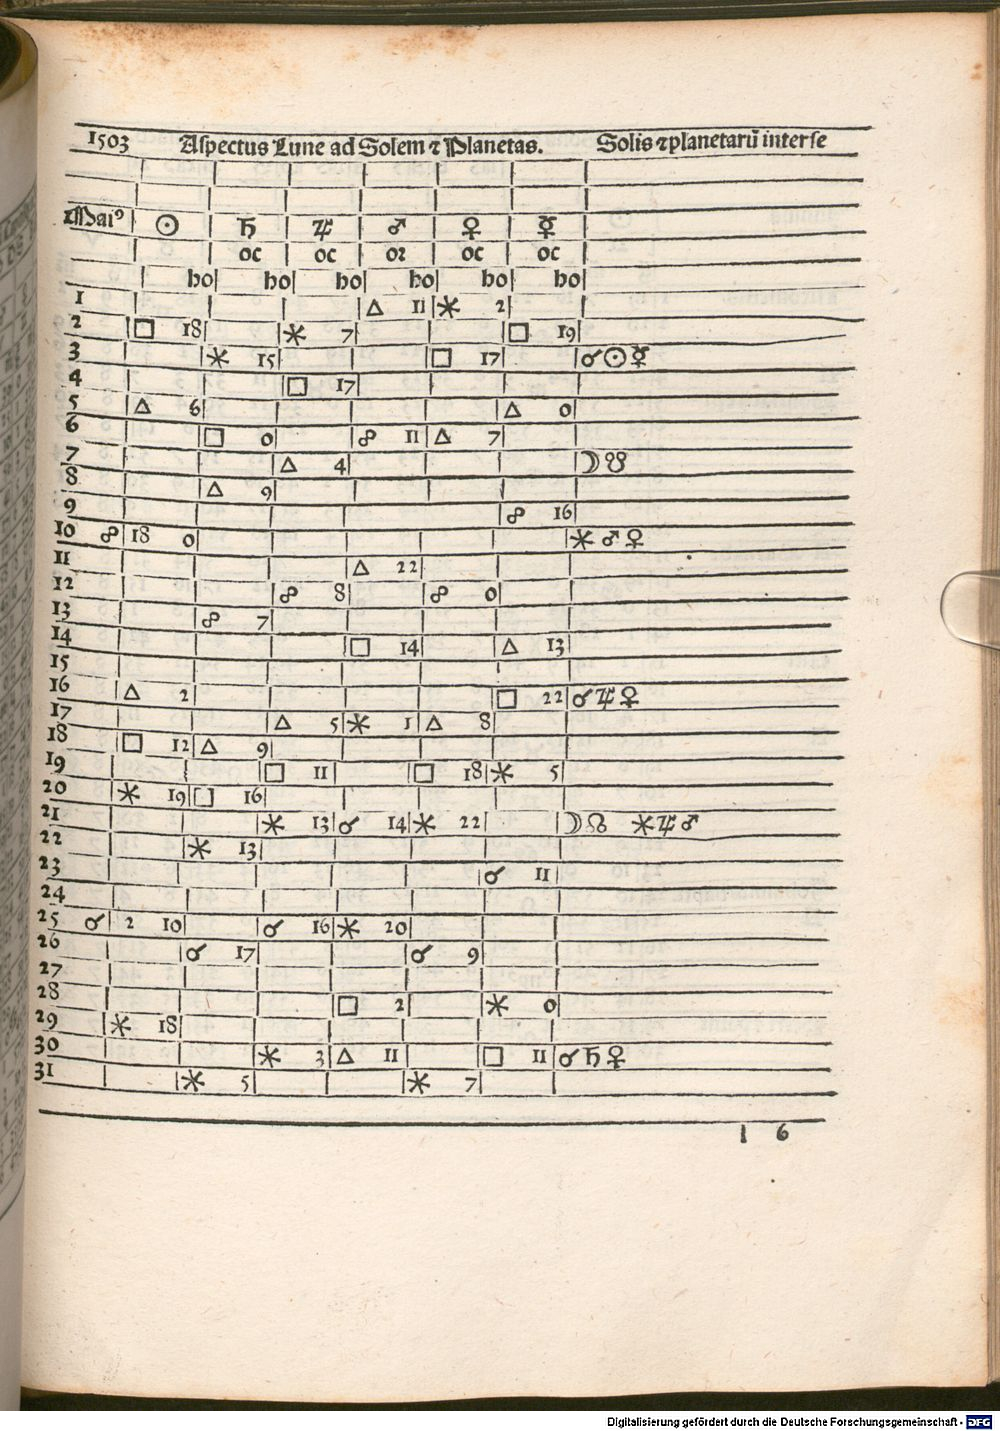 1503 Aspectus Lune ad Solem ⁊ Planetas. Solis ⁊ planetarū inter se
Maiꝰ ☉ ♄ ♃ ♂ ♀ ☿
oc oc oꝛ oc oc
ho ho ho ho ho ho
1 △ 11 ⚹ 2
2 □ 18 ⚹ 7 □ 19
3 ⚹ 15 □ 17 ☌ ☉ ☿
4 □ 17
5 △ 6 △ 0
6 □ 0 ☍ 11 △ 7
7 △ 4 ☽ ☋
8 △ 9
9 ☍ 16
10 ☍ 18 0 ⚹ ♂ ♀
11 △ 22
12 ☍ 8 ☍ 0
13 ☍ 7
14 □ 14 △ 13
15
16 △ 2 □ 22 ☌ ♃ ♀
17 △ 5 ⚹ 1 △ 8
18 □ 12 △ 9
19 □ 11 □ 18 ⚹ 5
20 ⚹ 19 □ 16
21 ⚹ 13 ☌ 14 ⚹ 22 ☽ ☊ ⚹ ♃ ♂
22 ⚹ 13
23 ☌ 11
24
25 ☌ 2 10 ☌ 16 ⚹ 20
26 ☌ 17 ☌ 9
27
28 □ 2 ⚹ 0
29 ⚹ 18
30 ⚹ 3 △ 11 □ 11 ☌ ♄ ♀
31 ⚹ 5 ⚹ 7
l 6
Digitalisierung gefördert durch die Deutsche Forschungsgemeinschaft - DFG